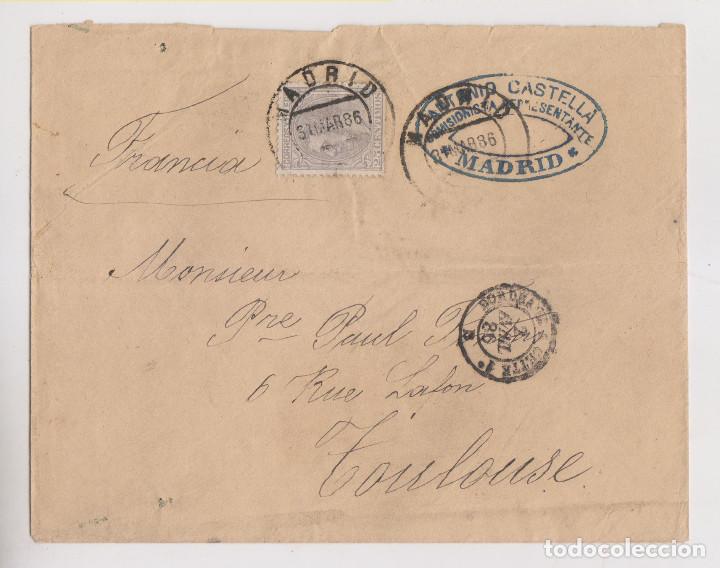 MADRID
31 MAR 86
MADRID
MAR 86
ANTONIO CASTELLÁ
COMISIONISTA REPRESENTANTE
* MADRID *
Francia
Monsieur
Pre Paul
6 Rue Lafon
Toulouse
BORDEAUX A CETTE 1°
AVRIL
86
todocoleccion.net